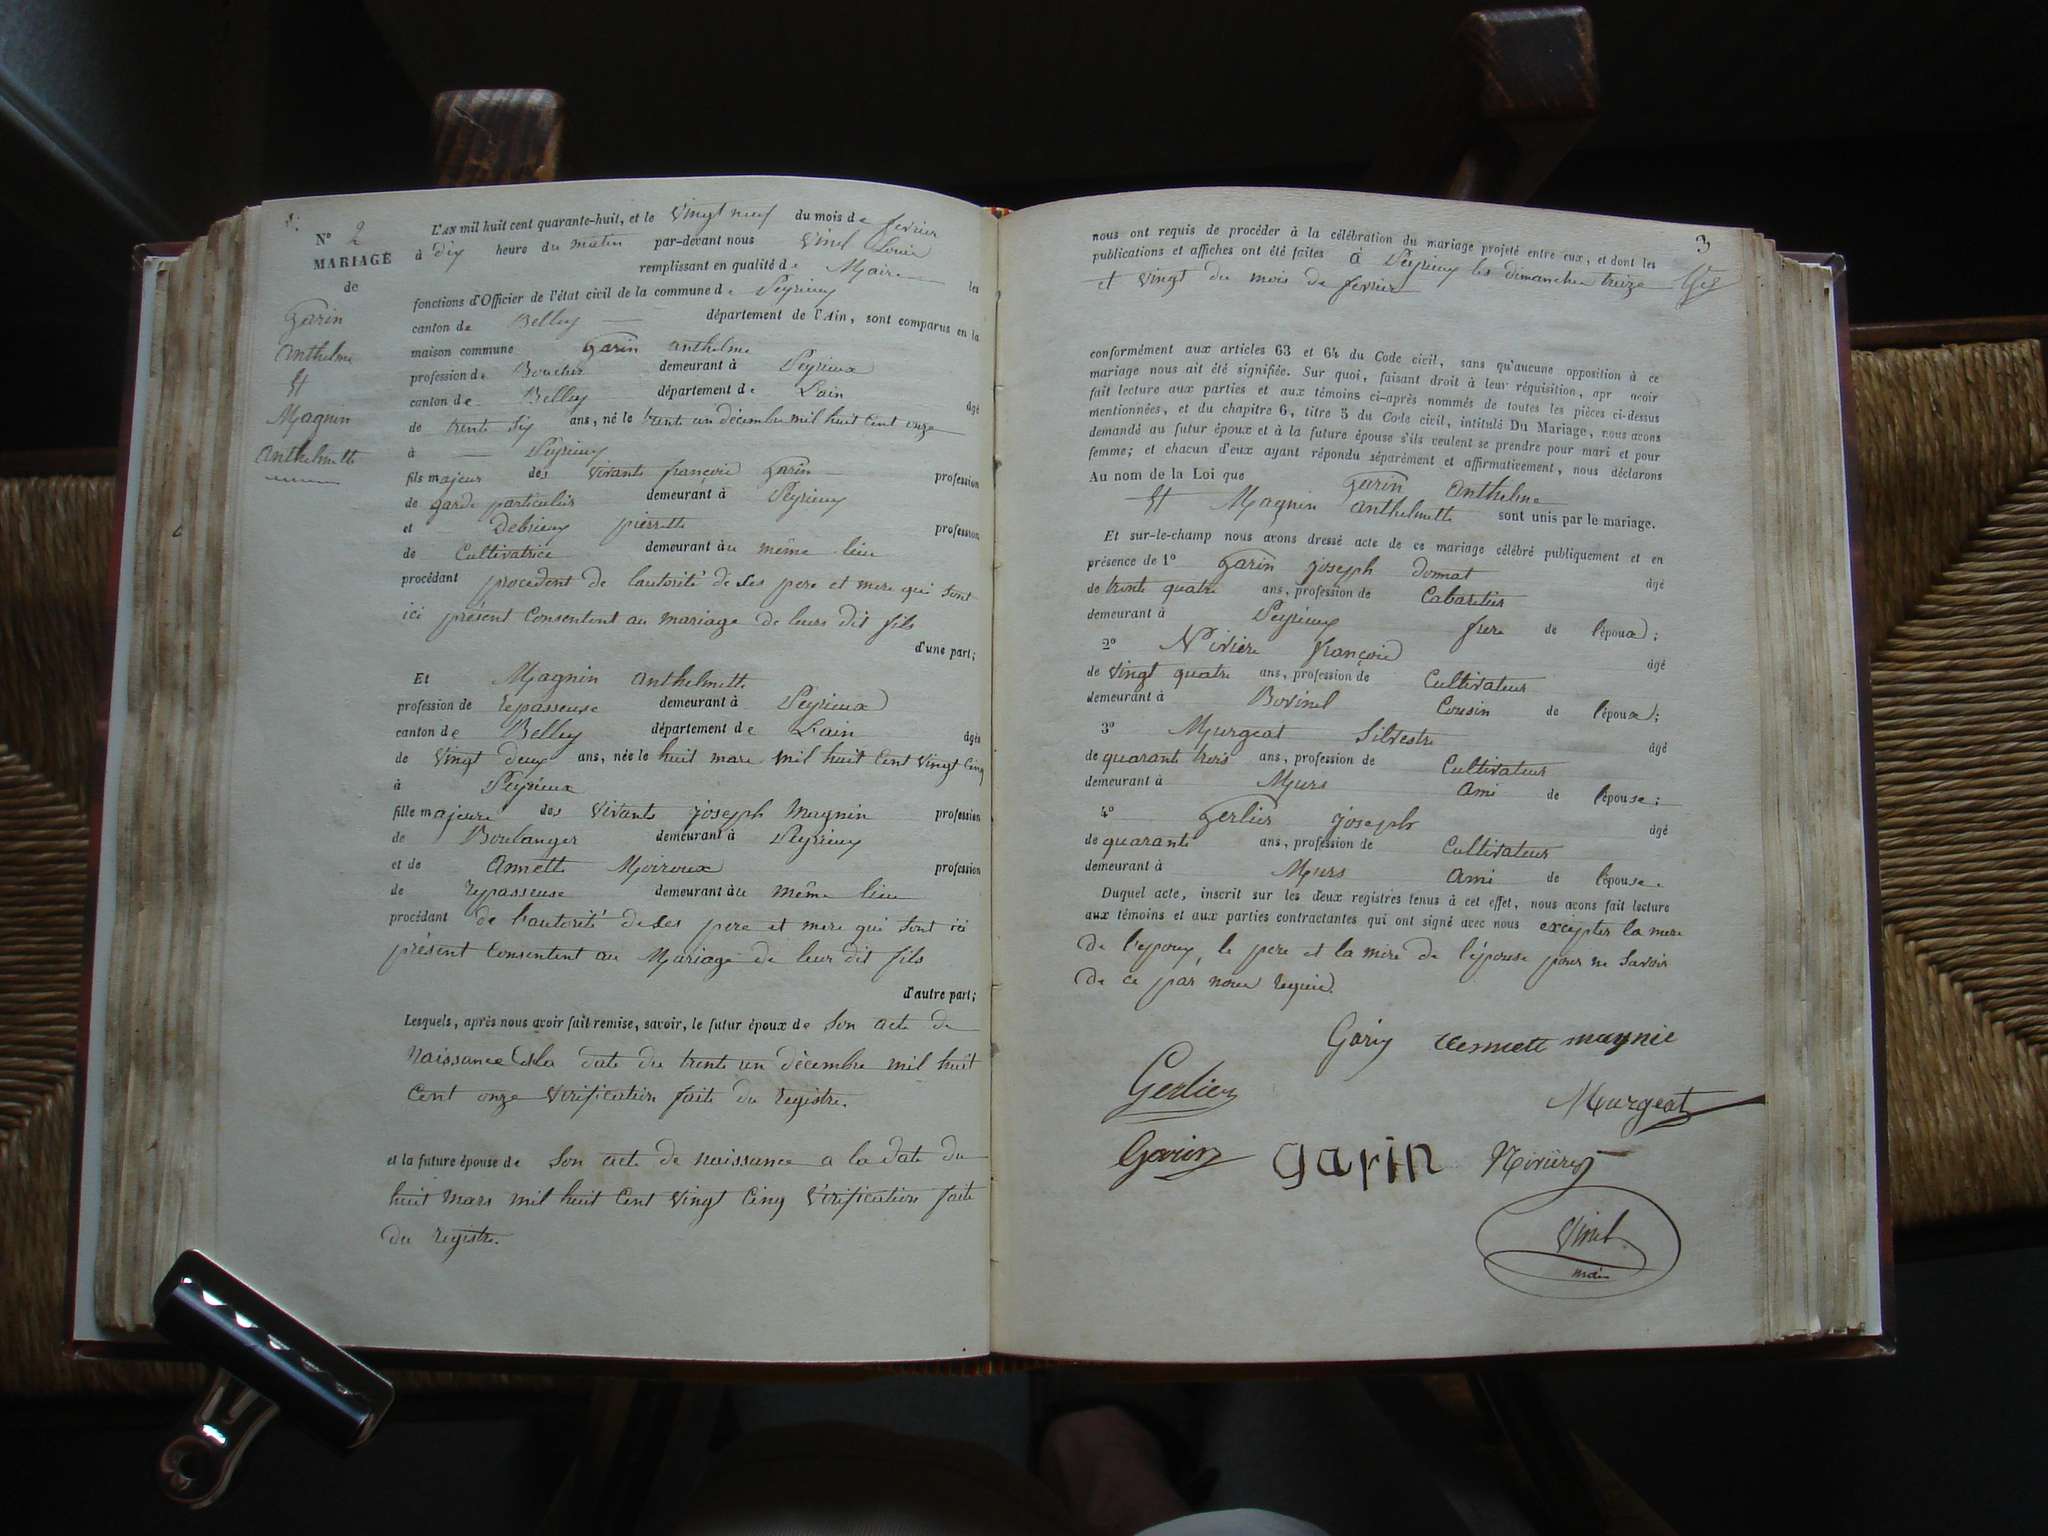 N° 2
MARIAGE
de
Garin
Anthelme
Et
Magnin
Anthelmette
L'AN mil huit cent quarante-huit, et le vingt neuf du mois de fevrier
à dix heure du matin par-devant nous Vinel Louis
remplissant en qualité de Maire les
fonctions d'Officier de l'état civil de la commune de Peyrieux
canton de Belley département de l'Ain, sont comparus en la
maison commune Garin Anthelme
profession de Boucher demeurant à Peyrieux
canton de Belley département de L'ain âgé
de trente Six ans, né le trente un décembre mil huit Cent onze
à Peyrieux
fils majeur des vivants françois Garin profession
de garde particulier demeurant à Peyrieux
et Debrieux pierrette profession
de Cultivatrice demeurant au même lieu
procédant procedent de l'autorité de ses pere et mere qui sont
ici présent Consentent au mariage de leurs dit fils
d'une part;
Et Magnin Anthelmette
profession de repasseuse demeurant à Peyrieux
canton de Belley département de L'ain âgée
de Vingt deux ans, née le huit mars mil huit Cent Vingt Cinq
à Peyrieux
fille majeure des Vivants joseph Magnin profession
de Boulanger demeurant à Peyrieux
et de Annette Moiroux profession
de repasseuse demeurant au même lieu
procédant de l'autorité de ses pere et mere qui sont ici
présent Consentent au Mariage de leur dit fils
d'autre part;
Lesquels, après nous avoir fait remise, savoir, le futur époux de Son acte de
Naissance à la date du trente un décembre mil huit
Cent onze Vérification faite du registre.
et la future épouse de Son acte de naissance a la date du
huit Mars mil huit Cent Vingt Cinq Vérification faite
du registre.
3
nous ont requis de procéder à la célébration du mariage projeté entre eux, et dont les
publications et affiches ont été faites à Peyrieux les dimanches treize
et vingt du mois de fevrier
conformément aux articles 63 et 64 du Code civil, sans qu'aucune opposition à ce
mariage nous ait été signifiée. Sur quoi, faisant droit à leur réquisition, apr avoir
fait lecture aux parties et aux témoins ci-après nommés de toutes les pièces ci-dessus
mentionnées, et du chapitre 6, titre 5 du Code civil, intitulé Du Mariage, nous avons
demandé au futur époux et à la future épouse s'ils veulent se prendre pour mari et pour
femme; et chacun d'eux ayant répondu séparément et affirmativement, nous déclarons
Au nom de la Loi que Garin Anthelme
Et Magnin Anthelmette sont unis par le mariage.
Et sur-le-champ nous avons dressé acte de ce mariage célébré publiquement et en
présence de 1° Garin joseph donnat âgé
de trente quatre ans, profession de Cabaretier
demeurant à Peyrieux frere de l'époux;
2° Nivière françois âgé
de Vingt quatre ans, profession de Cultivateur
demeurant à Bovinel Cousin de l'époux;
3° Murgeat Silvestre âgé
de quarante trois ans, profession de Cultivateur
demeurant à Murs Ami de l'épouse;
4° Gerlier joseph âgé
de quarante ans, profession de Cultivateur
demeurant à Murs Ami de l'épouse.
Duquel acte, inscrit sur les deux registres tenus à cet effet, nous avons fait lecture
aux témoins et aux parties contractantes qui ont signé avec nous excepter la mere
de l'epoux, le pere et la mere de l'épouse pour ne Savoir
de ce par nous requis.
Garin
Gerlier
Murgeat
Garin garin Nivière
Vinel
maire